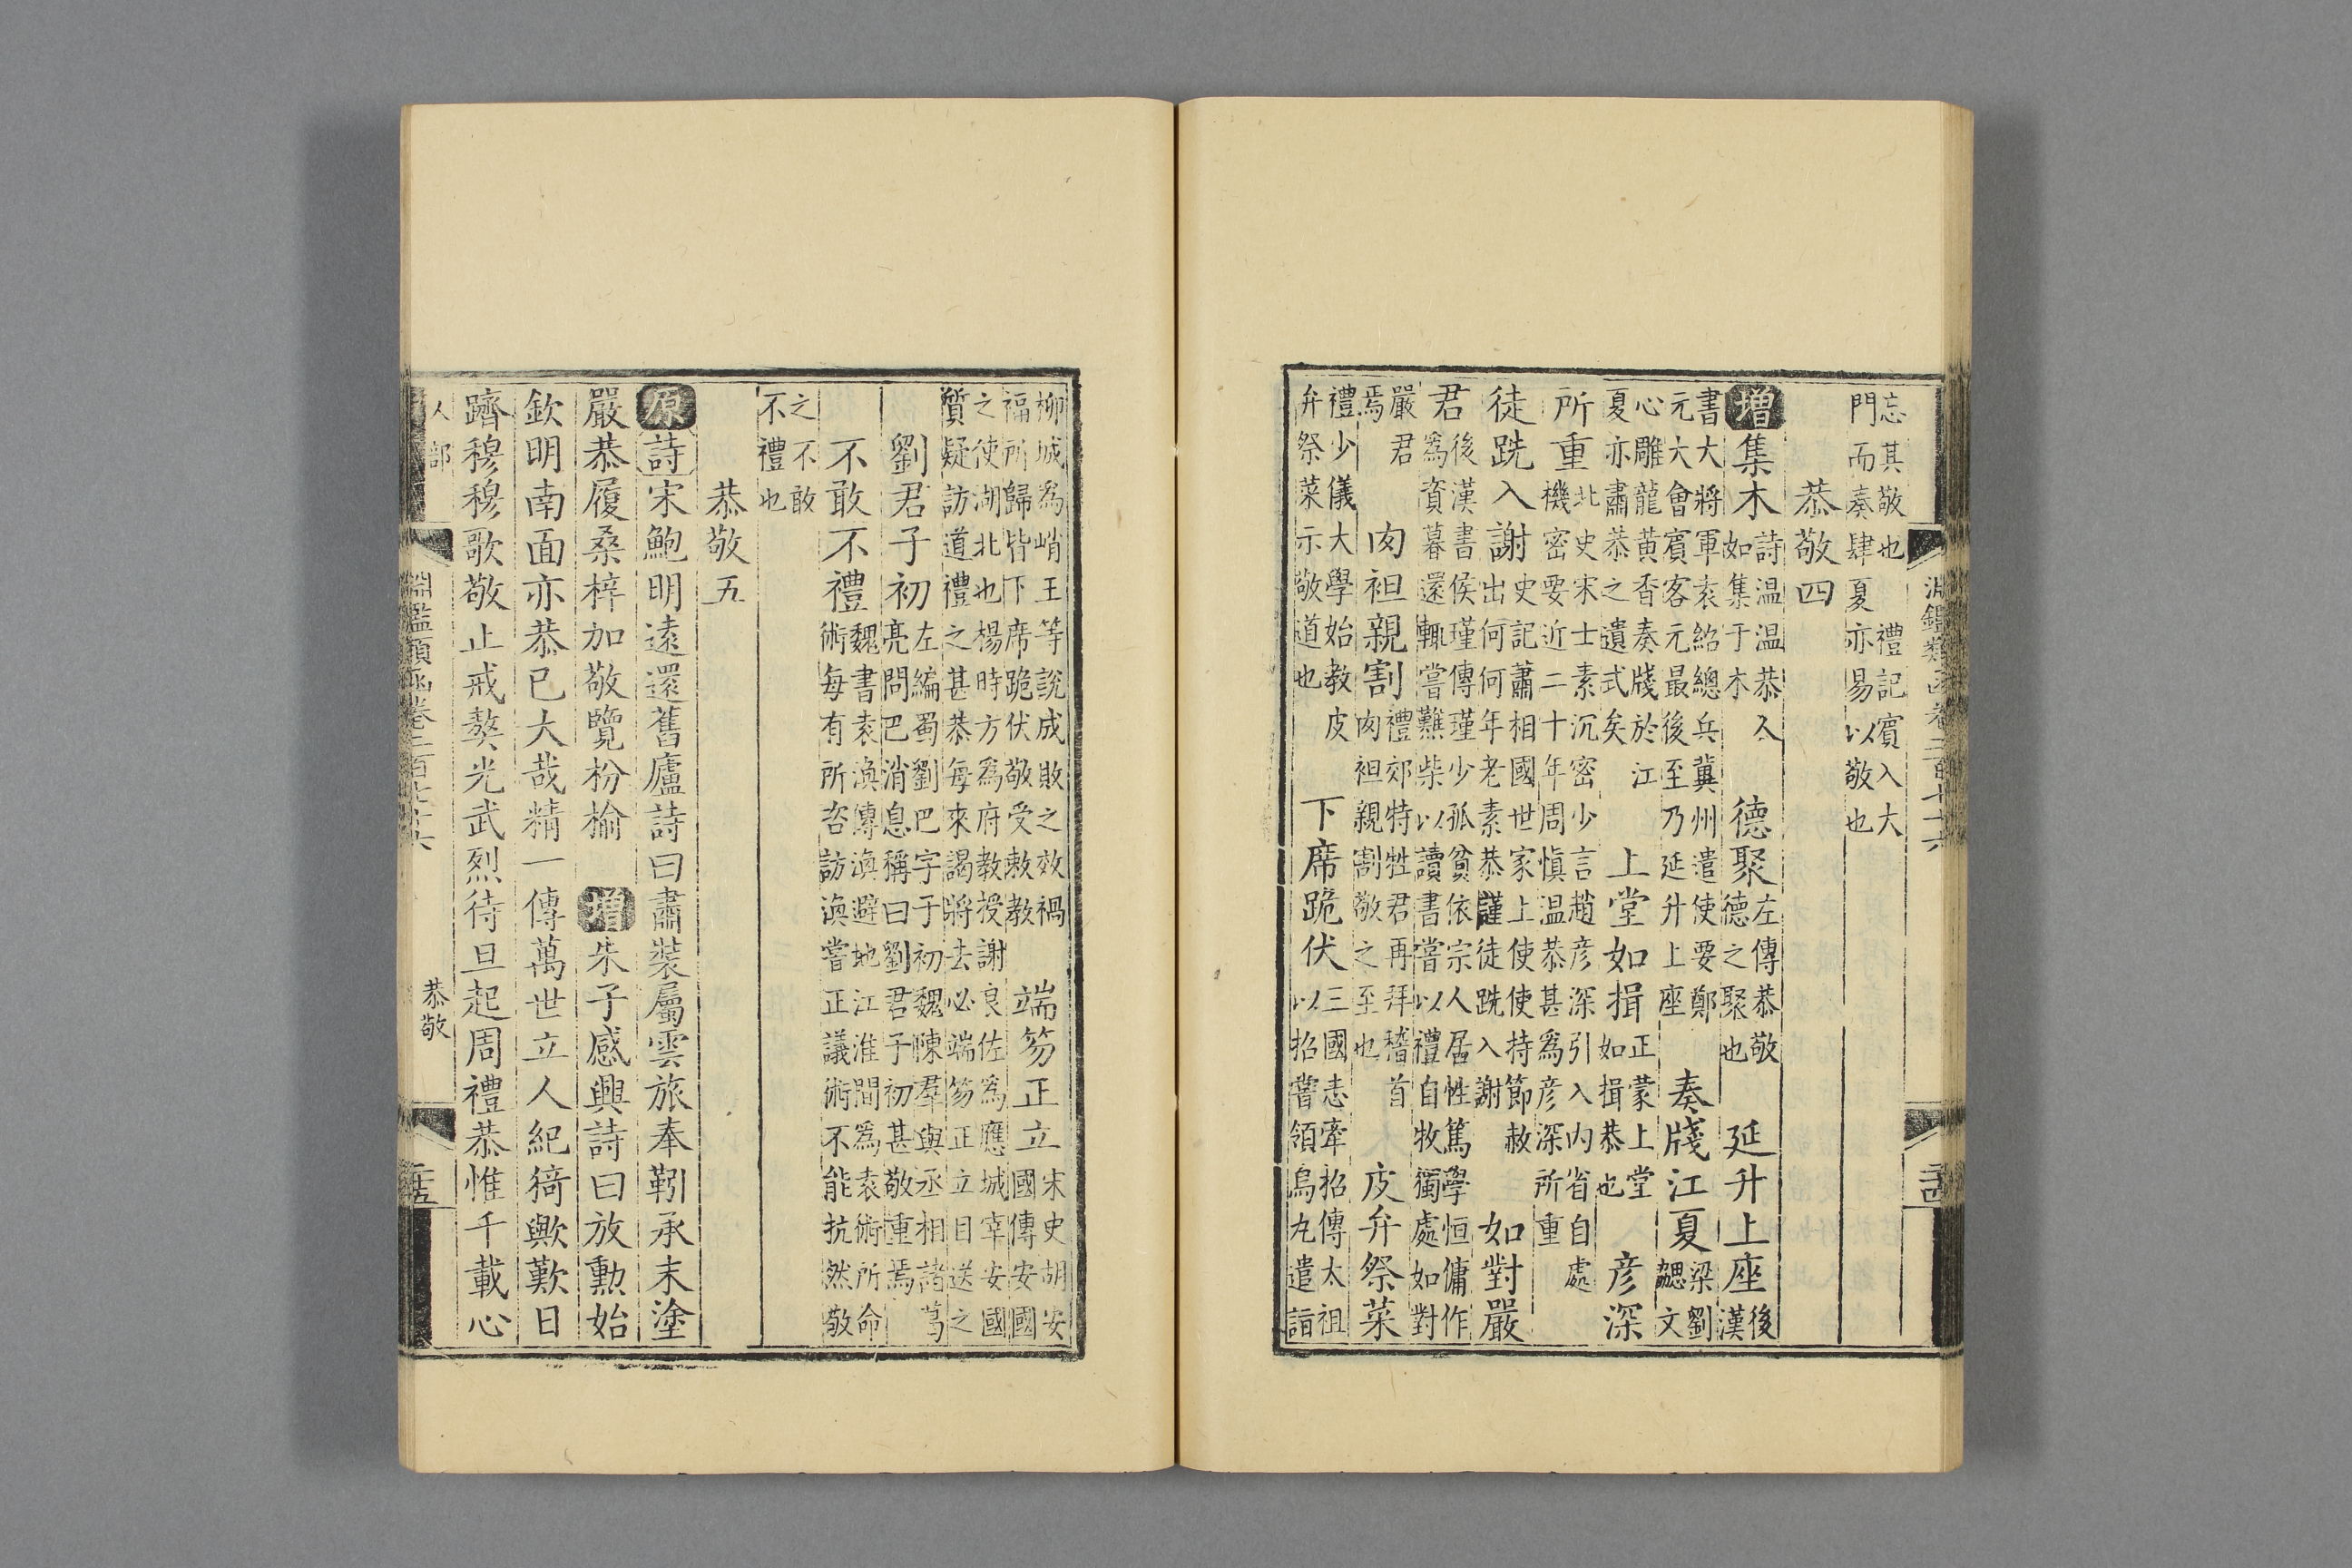 忘其敬也 禮記賓入大門而奏肆夏亦易以敬也
恭敬四
增集木詩温温恭人如集于木 德聚左傳恭敬德之聚也 延升上座後漢
書大將軍袁紹總兵冀州遣使要鄭元大會賓客元最後至乃延升上座 奏牋江夏梁劉勰文
心雕龍黃香奏牋於江夏亦肅恭之遺式矣 上堂如揖正蒙上堂如揖恭也 彥深
所重北史宋士素沉密少言趙彥深引入內省自處機密要近二十年周慎温恭甚爲彥深所重
徒跣入謝史記蕭相國世家上使使持節赦出何何年老素恭謹徒跣入謝 如對嚴
君後漢書侯瑾傳瑾少孤貧依宗人居性篤學恒傭作爲資暮還輒嘗難柴以讀書嘗以禮自牧獨處如對
嚴君焉 肉袒親割禮郊特牲君再拜稽首肉袒親割敬之至也 皮弁祭菜
禮少儀大學始教皮弁祭菜示敬道也 下席跪伏三國志牽招傳太祖以招嘗領烏丸遣詣
柳城爲峭王等說成敗之效禍福所歸皆下席跪伏敬受敕教 端笏正立宋史胡安國傳安國
之使湖北也楊時方爲府教授謝良佐爲應城宰安國質疑訪道禮之甚恭每來謁將去必端笏正立目送之
劉君子初左編蜀劉巴字子初魏陳羣與丞相諸葛亮問巴消息稱曰劉君子初甚敬重焉
不敢不禮魏書袁渙傳渙避地江淮間爲袁術所命術每有所咨訪渙嘗正議術不能抗然敬
之不敢不禮也
恭敬五
原詩宋鮑明遠還舊廬詩曰肅裝屬雲旅奉靷承末塗
嚴恭履桑梓加敬覽枌榆 增朱子感興詩曰放勲始
欽明南面亦恭已大哉精一傳萬世立人紀猗歟歎日
躋穆穆歌敬止戒獒光武烈待旦起周禮恭惟千載心
人部 淵鑑類函卷二百七十六 恭敬 二十五